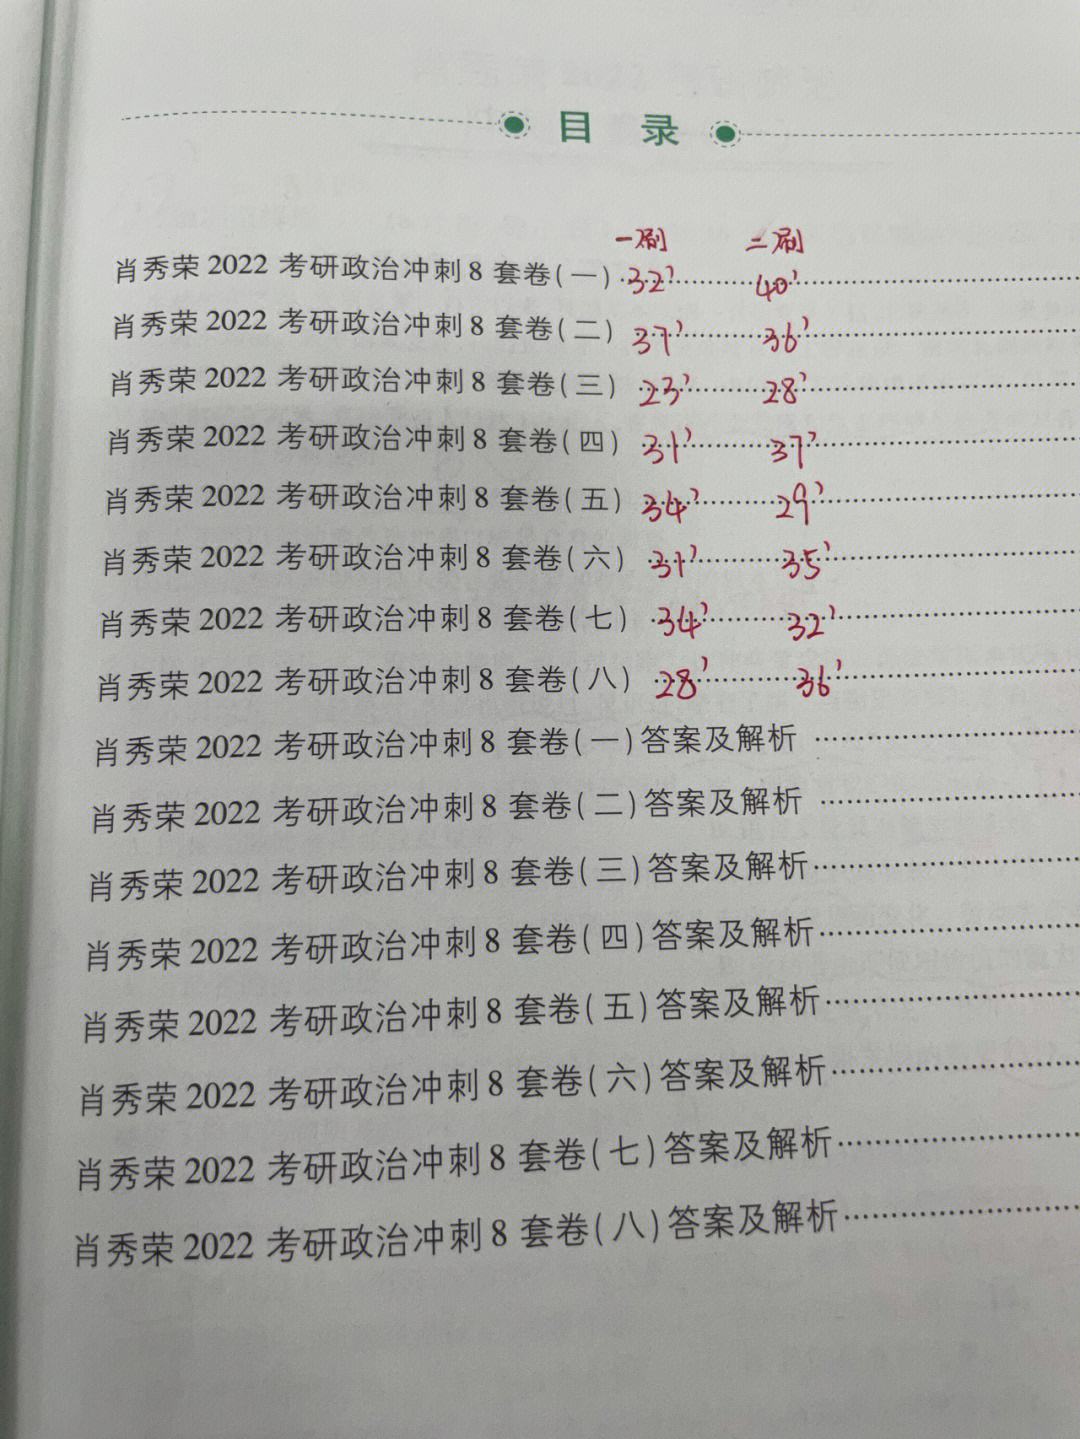 目 录
一刷 二刷
肖秀荣2022 考研政治冲刺8 套卷(一)……32'……40'……
肖秀荣2022 考研政治冲刺8 套卷(二)……37'……36'……
肖秀荣2022 考研政治冲刺8 套卷(三)……23'……28'……
肖秀荣2022 考研政治冲刺8 套卷(四)……31'……37'……
肖秀荣2022 考研政治冲刺8 套卷(五)……34'……29'……
肖秀荣2022 考研政治冲刺8 套卷(六)……31'……35'……
肖秀荣2022 考研政治冲刺8 套卷(七)……34'……32'……
肖秀荣2022 考研政治冲刺8 套卷(八)……28'……36'……
肖秀荣2022 考研政治冲刺8 套卷(一)答案及解析……
肖秀荣2022 考研政治冲刺8 套卷(二)答案及解析……
肖秀荣2022 考研政治冲刺8 套卷(三)答案及解析……
肖秀荣2022 考研政治冲刺8 套卷(四)答案及解析……
肖秀荣2022 考研政治冲刺8 套卷(五)答案及解析……
肖秀荣2022 考研政治冲刺8 套卷(六)答案及解析……
肖秀荣2022 考研政治冲刺8 套卷(七)答案及解析……
肖秀荣2022 考研政治冲刺8 套卷(八)答案及解析……